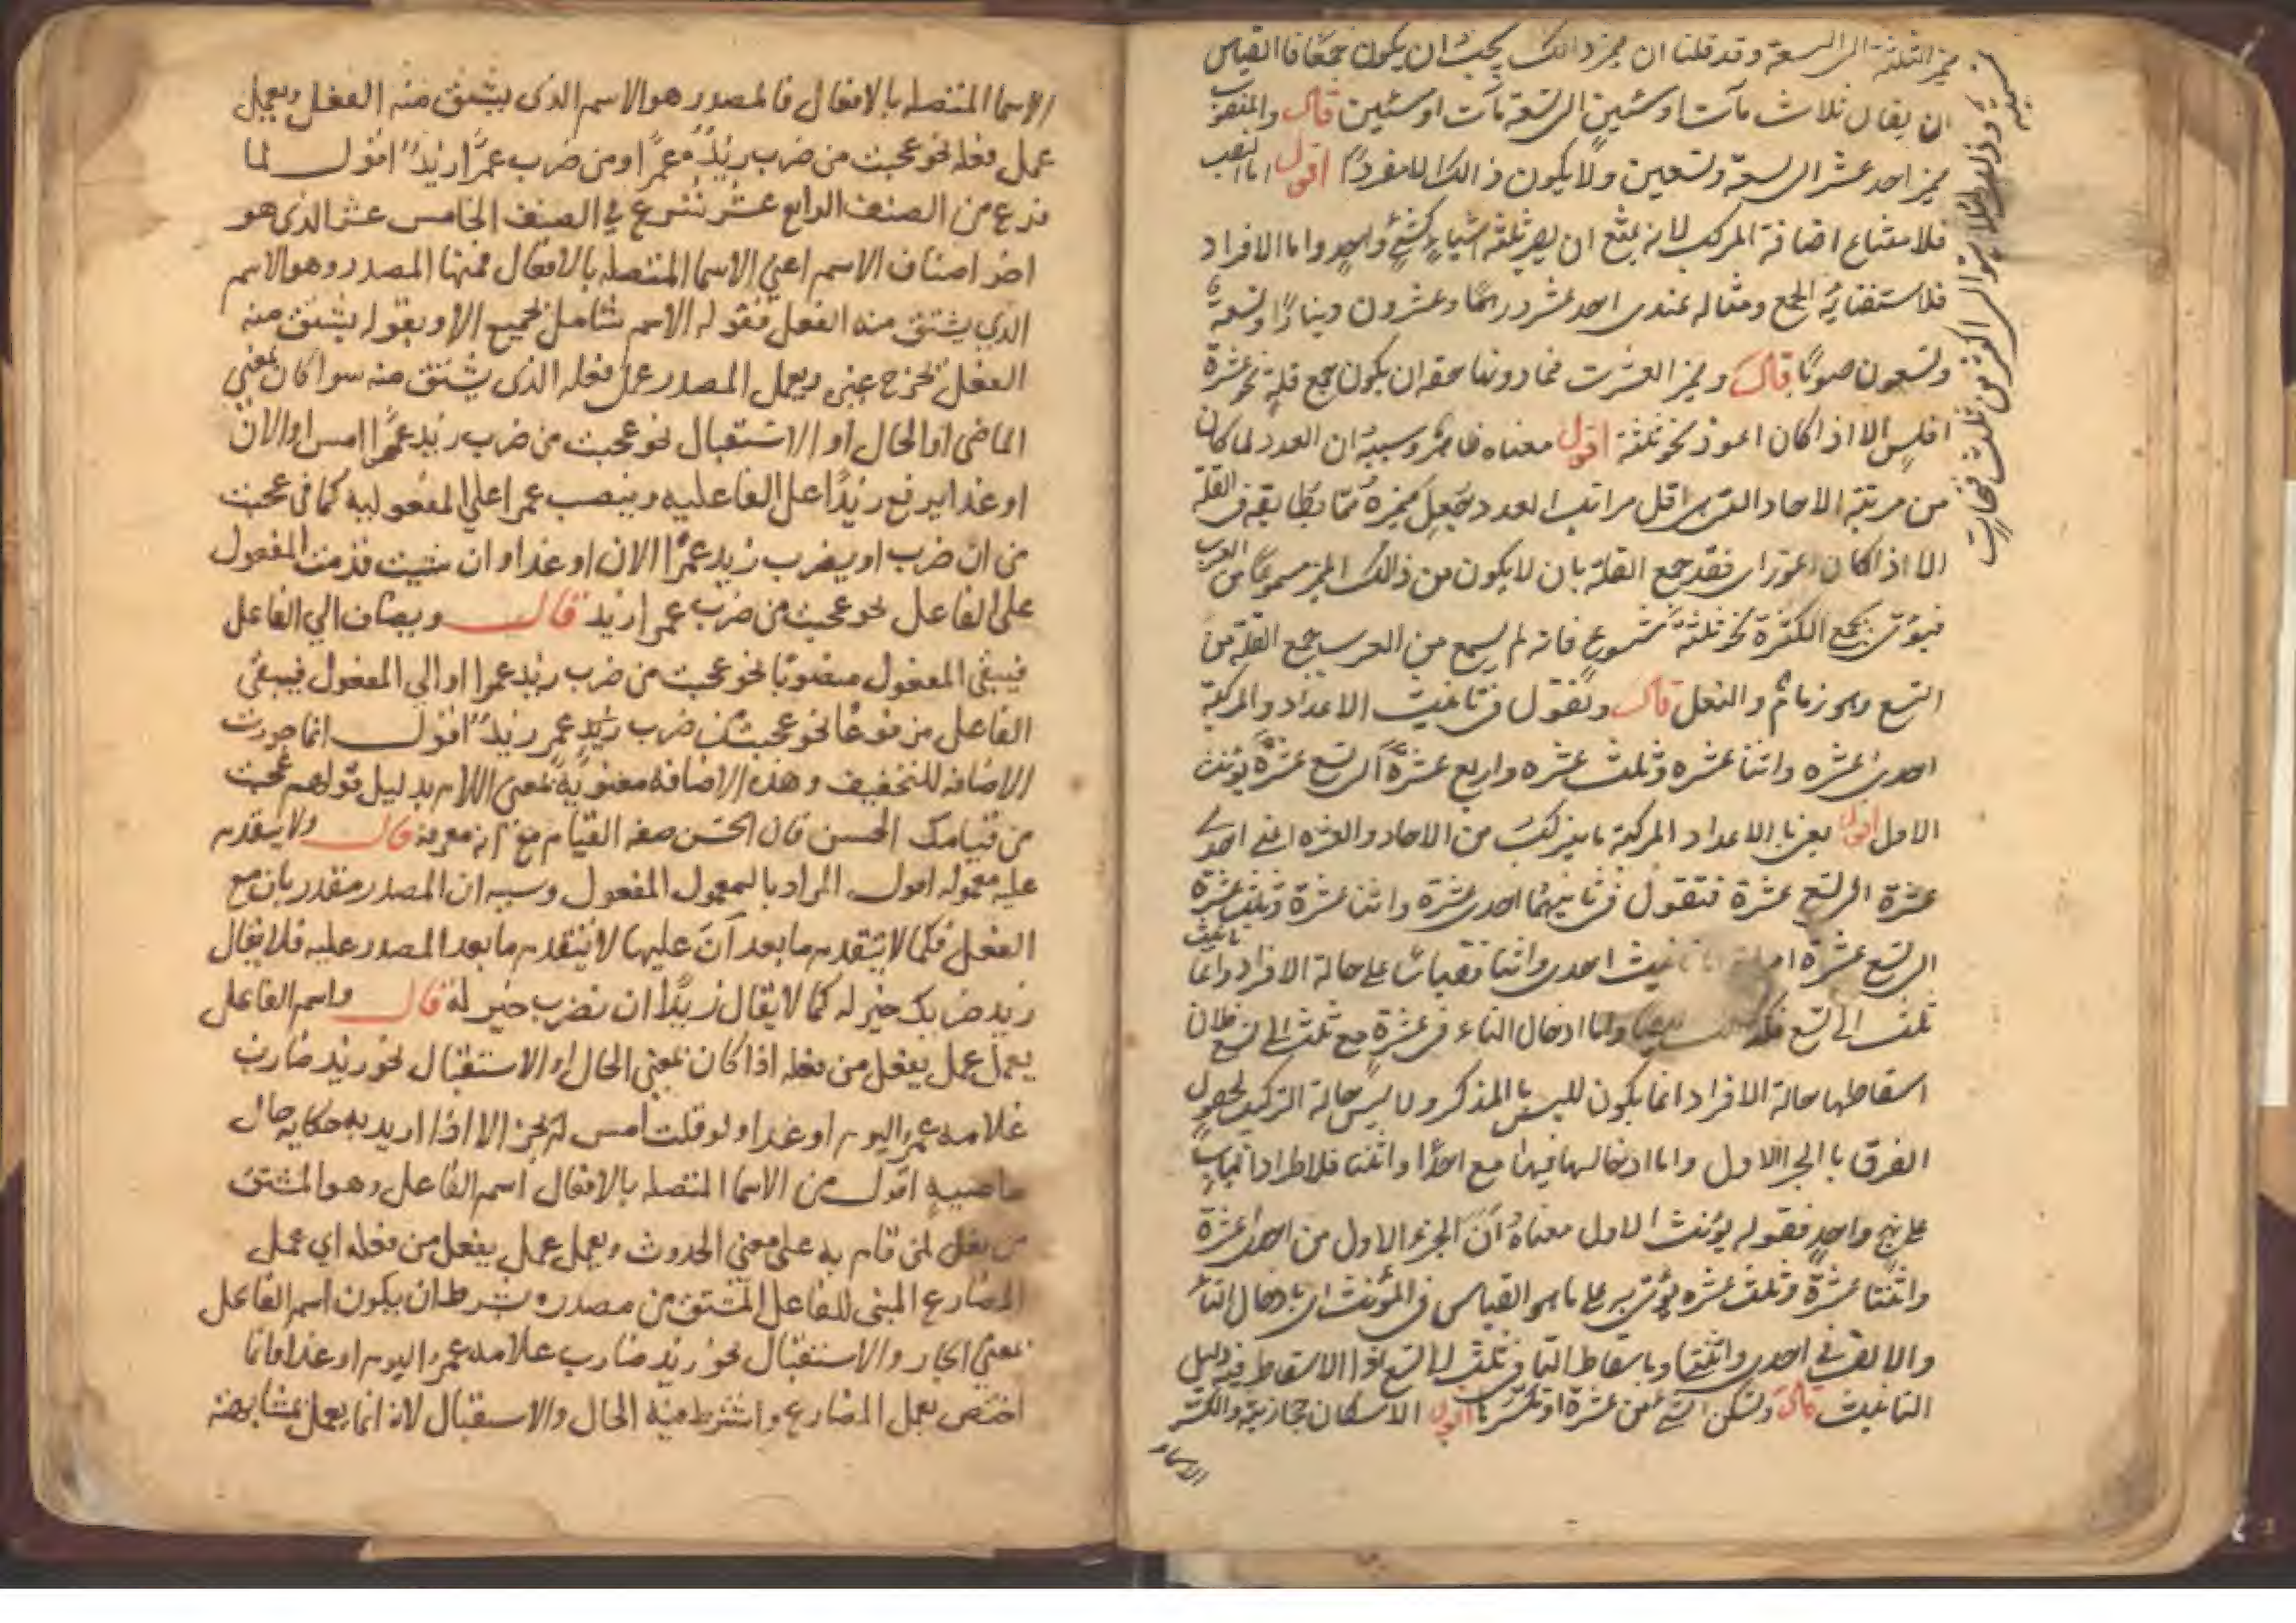 مميز الثلثة الى التسعة وقد قلنا ان مميز ذالك يجب ان يكون جمعا فالقياس
ان يقال ثلاث مآت او مئين الى تسعة مآت او مئين قال والمنصوب
مميز احد عشر الى تسعة وتسعين ولا يكون ذالك الا مفردًا اقول اما النصب
فلامتناع اضافة المركب لانه يمتنع ان يصير ثلثة اشياء كشئ واحد واما الافراد
فلاستغنائه الجمع ومثاله عندى احد عشر درهمًا وعشرون دينارًا وتسعة
وتسعون صوبًا قال ومميز العشرة فما دونها حقه ان يكون جمع قلة نحو عشرة
افلس الا اذا كان اعوز نحو ثلثة اقول معناه ظاهر وسببه ان العدد لما كان
من مرتبة الاحاد التى اقل مراتب العدد جعل مميزه مما يطابقه فى القلة
الا اذا كان اعوز اى فقد جمع القلة بان لا يكون من ذالك المميز مسموعًا من العرب
فيؤتى بجمع الكثرة نحو ثلثة شسوع فانه لم يسمع من العرب جمع القلة من
الشسع وهو زمام النعل قال وتقول فى تانيث الاعداد المركبة
احدى عشره واثنتا عشره وثلث عشره واربع عشرة الى تسع عشرة يؤنث
الاول اقول يعنى بالاعداد المركبة ما يتركب من الاحاد والعشره اعنى احدى
عشرة الى تسع عشرة فتقول فى تانيثهما احدى عشرة واثنتا عشرة وثلث عشرة
الى تسع عشره اما تانيث احدى واثنتا فقياسًا على حالة الافراد واما تانيث
ثلث الى تسع فكذلك ايضا واما ادخال التاء فى عشرة مع ثلث الى تسع فلان
اسقاطها حالة الافراد انما يكون للبس بالمذكر ولا لبس حالة التركيب لحصول
الفرق بالجزء الاول واما ادخالها فيها مع احدى واثنتا فلاطراد الباب
على نهج واحد فقوله يؤنث الاول معناه أن الجزء الاول من احدى عشرة
واثنتا عشرة وثلث عشره يؤتى به على ما هو القياس فى المؤنث اى بادخال التاء
والالف فى احدى واثنتا وباسقاط التاء فى ثلث الى تسع لان الاسقاط فيه دليل
التانيث قال وتسكن الشين من عشرة او تكسرها اقول الاسكان حجازية والكسر
الاسماء
الاسما المتصله بالافعال فالمصدر هو الاسم الذى يشتق منه الفعل ويعمل
عمل فعله نحو عجبت من ضرب زيدٌ عمرًا ومن ضرب عمرًا زيدٌ اقول لما
فرع من الصنف الرابع عشر شرع فى الصنف الخامس عشر الذى هو
اخر اصناف الاسم اعنى الاسما المتصله بالافعال فمنها المصدر وهو الاسم
الذى يشتق منه الفعل فقوله الاسم شامل لجميع الا وبقوله يشتق منه
الفعل تخرج عنه ويعمل المصدر عمل فعله الذى يشتق منه سوا كان بمعنى
الماضى او الحال او الاستقبال نحو عجبت من ضرب زيد عمرًا امس او الان
او غدا يرفع زيدًا على الفاعليه وينصب عمرا على المفعوليه كما فى عجبت
من ان ضرب او يضرب زيد عمرًا الان او غدا وان شيت قدمت المفعول
على الفاعل نحو عجبت من ضرب عمرا زيد قال ويضاف الى الفاعل
فيبقى المفعول منصوبًا نحو عجبت من ضرب زيد عمرا او الى المفعول فيبقى
الفاعل مرفوعًا نحو عجبت من ضرب عمر زيدٌ اقول انما جوزت
الاضافه للتخفيف وهذه الاضافه معنوية بمعنى اللام بدليل قولهم عجبت
من قيامك الحسن فان الحسن صفه القيام مع انه معرفة قال ولا يتقدم
عليه معموله اقول المراد بالمعمول المفعول وسببه ان المصدر مقدر بان مع
الفعل فكما لا يتقدم ما بعد أن عليها لا يتقدم ما بعد المصدر عليه فلا يقال
زيد ضربك خير له كما لا يقال زيدًا ان تضرب خير له قال واسم الفاعل
يعمل عمل يفعل من فعله اذا كان بمعنى الحال او الاستقبال نحو زيد ضارب
غلامه عمر اليوم او غدا ولو قلت امس لم يجز الا اذا اريد به حكايه حال
ماضيه اقول من الاسما المتصله بالافعال اسم الفاعل وهو المشتق
من يفعل لمن قام به على معنى الحدوث ويعمل عمل يفعل من فعله اى عمل
المضارع المبنى للفاعل المشتق من مصدره بشرط ان يكون اسم الفاعل
بمعنى الحال والاستقبال نحو زيد ضارب غلامه عمر اليوم او غدا وانما
اختص بعمل المضارع واشترط فيه الحال والاستقبال لانه انما يعمل بمشابهته